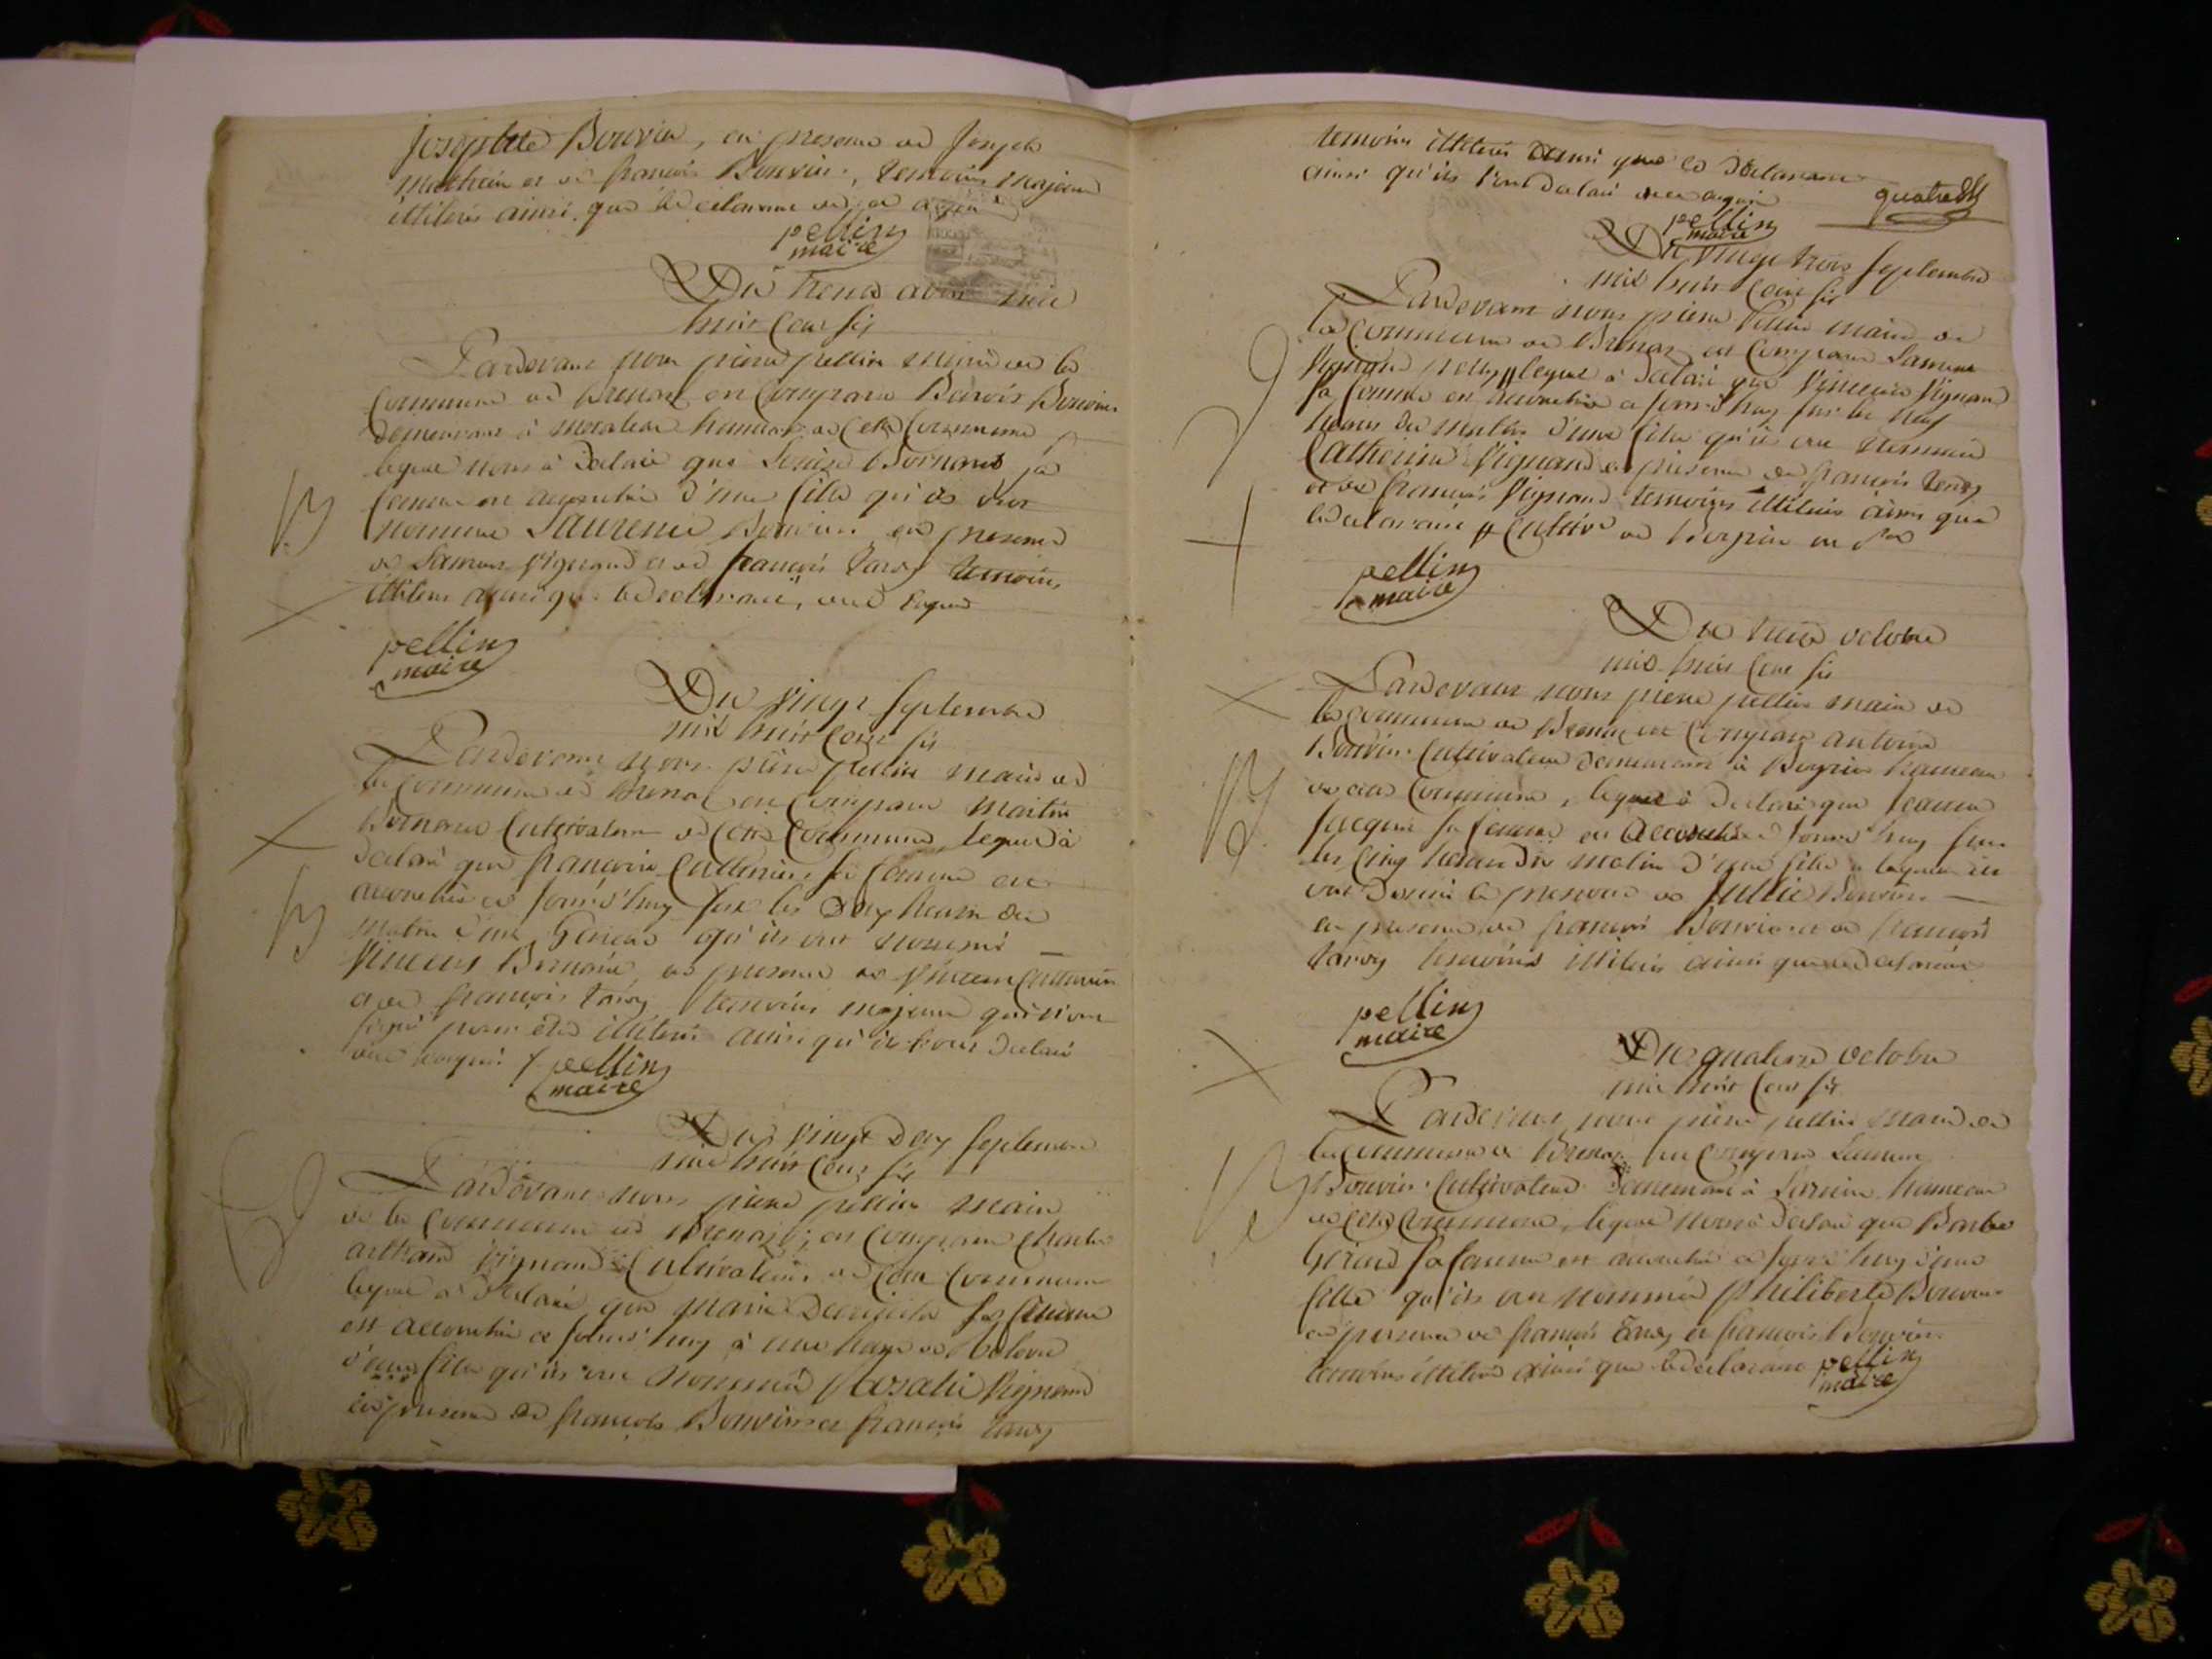 Josephte Bouvier, en presence de Joseph
Mathieu et de françois Bouvier, temoins majeurs
illiterés ainsi que le declarant de ce requis
pellin
maire
Du trente avril mil
huit Cent six
Pardevant nous pierre pellin maire de la
Commune de Brenaz est Comparu Benoit Bouvier
demeurant à hameau de cette Commune
lequel nous à declaré que Louise Bornard sa
femme est accouchée d'une fille qu'ils ont
nommée Laurence Bouvier en presence
de Laurent Vignand et de françois Tardy temoins
illiterés ainsi que le declarant, de ce requis
pellin
maire
Du vingt Septembre
mil huit Cent six
Pardevant nous pierre pellin maire de
la Commune de Brenaz est Comparu Martin
Bornarel Cultivateur de Cette Commune lequel à
declaré que françoise sa femme est
accouchée ce jourd'huy sur les deux heures du
matin d'un Garcon qu'ils ont nommé
Vincent en presence de Vincent
et de françois Tardy temoins majeurs qui n'ont
signé pour etre illiterés ainsi qu'ils l'ont declaré
de ce requis pellin
maire
Du vingt deux Septembre
mil huit Cent six
Pardevant nous pierre pellin maire
de la Commune de Brenaz, est Comparu Charles
anthard Vignand Cultivateur de Cette Commune
lequel a declaré que marie sa femme
est accouchée ce jourd'huy à une heure de
d'une fille qu'ils ont nommée Rosalie Vignand
en presence de françois Bouvier et françois Tardy
temoins illiterés ainsi que le declarant
ainsi qu'ils l'ont declaré de ce requis
quatre
pellin
maire
Du vingt trois Septembre
mil huit Cent six
Pardevant nous pierre Pellin maire de
la Commune de Brenaz est Comparu Laurent
Vignand lequel à declaré que Vignand
sa femme est accouchée ce jourd'huy sur les neuf
heures du matin d'une fille qu'ils ont nommée
Catherine Vignand en presence de françois Tardy
et de françois Vignand temoins illiterés ainsi que
le declarant Cultiv.r de
pellin
maire
Du octobre
mil huit Cent six
Pardevant nous pierre pellin maire de
la Commune de Brenaz est Comparu antoine
Bouvier Cultivateur demeurant à hameau
de cette Commune, lequel à declaré que
sa femme est accouchée ce jourd'huy sur
les Cinq heures du matin d'une fille a laquelle ils
ont donné le prenom de Jullie Bouvier
en presence de françois Bouvier et de françois
Tardy temoins illiterés ainsi que le declarant
pellin
maire
Du quatorze octobre
mil huit Cent six
Pardevant nous pierre pellin maire de
la Commune de Brenaz est Comparu Laurent
Bouvier Cultivateur demeurant à hameau
de Cette Commune, lequel nous à declaré que Barbe
sa femme est accouchée ce jourd'huy d'une
fille qu'ils ont nommée Philiberte Bouvier
en presence de françois Tardy et françois Bouvier
temoins illiterés ainsi que le declarant pellin
maire